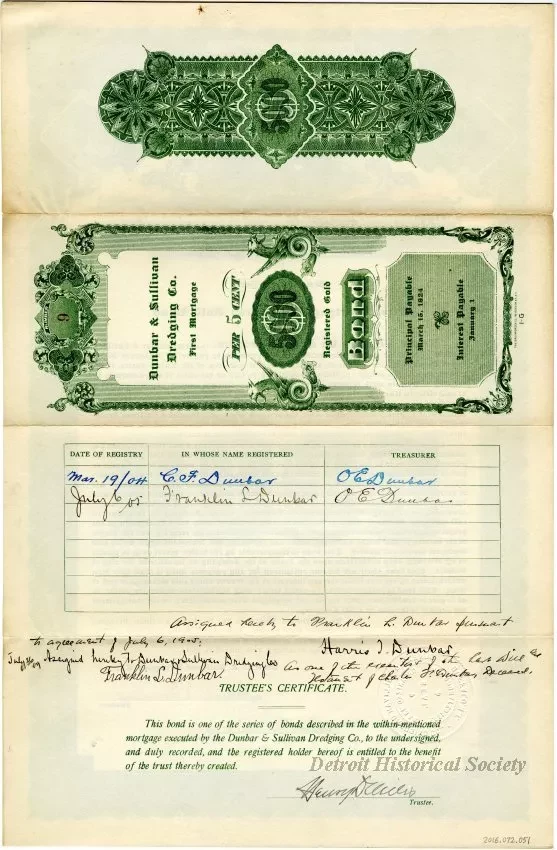 5000
9
Dunbar & Sullivan
Dredging Co.
First Mortgage
PER 5 CENT
5000
Registered Gold
Bond
Principal Payable
March 15, 1924
Interest Payable
January 1
DATE OF REGISTRY IN WHOSE NAME REGISTERED TREASURER
Mar. 19/04 C. F. Dunbar O E Dunbar
July 6 05 Franklin L Dunbar O E Dunbar
Assigned hereby to Franklin L. Dunbar pursuant
to agreement of July 6, 1905.
Harris T. Dunbar
Assigned hereby to Dunbar & Sullivan Dredging Co
as one of the executors of the last Will and
Franklin L. Dunbar
testament of Charles F. Dunbar Deceased.
TRUSTEE'S CERTIFICATE.
This bond is one of the series of bonds described in the within-mentioned
mortgage executed by the Dunbar & Sullivan Dredging Co., to the undersigned,
and duly recorded, and the registered holder hereof is entitled to the benefit
of the trust thereby created.
Detroit Historical Society
Trustee.
2016.072.051